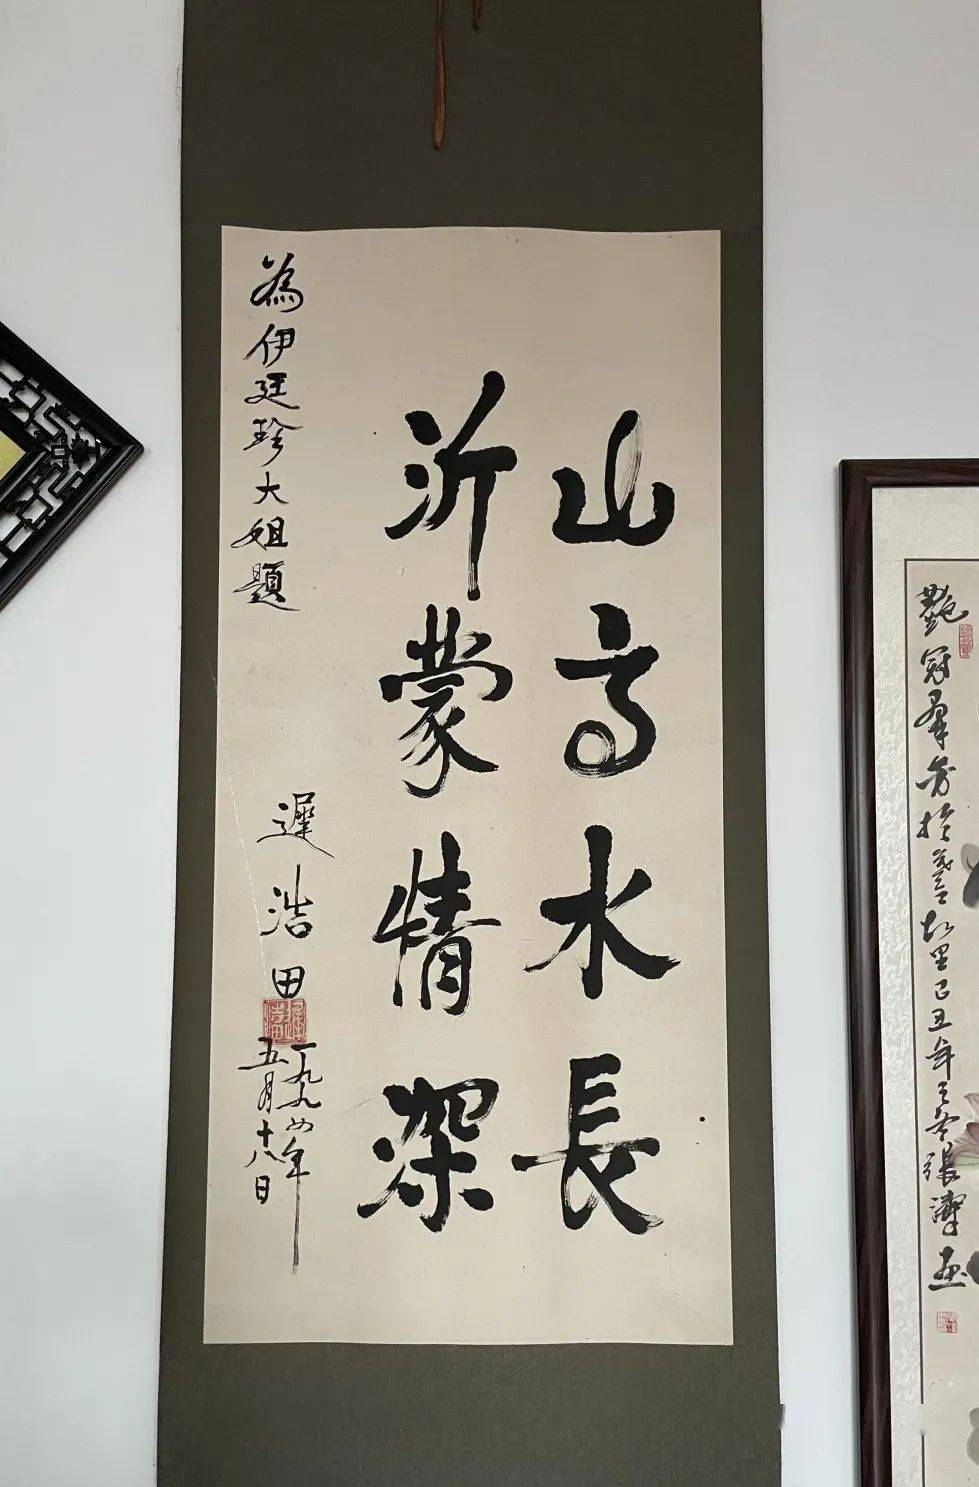 山高水長
沂蒙情深
為伊廷珍大姐題
遲浩田
一九九四年
五月十八日
艷冠羣芳
己丑年
張
画